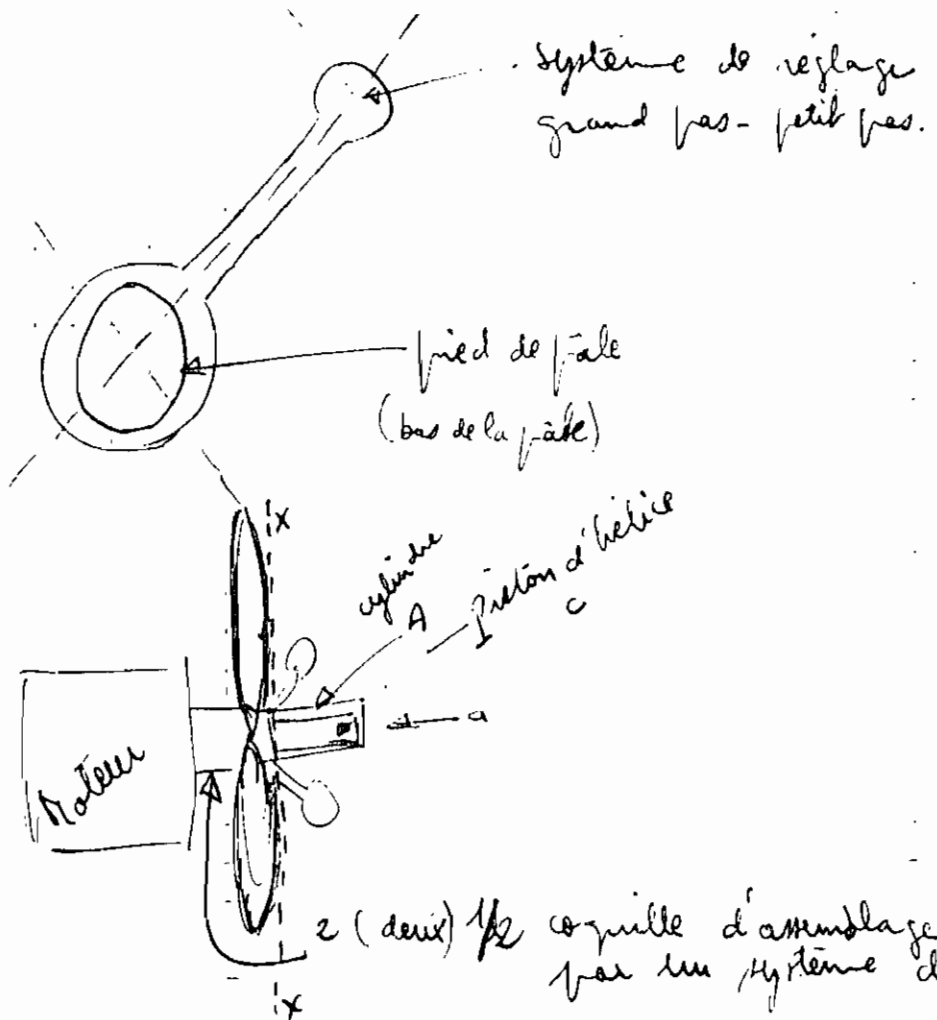 système de réglage
grand pas - petit pas.
pied de pâle
(bas de la pâle)
x
cylindre
A
piston d'hélice
c
a
Moteur
2 (deux) 1/2 coquille d'assemblage
par un système d
x